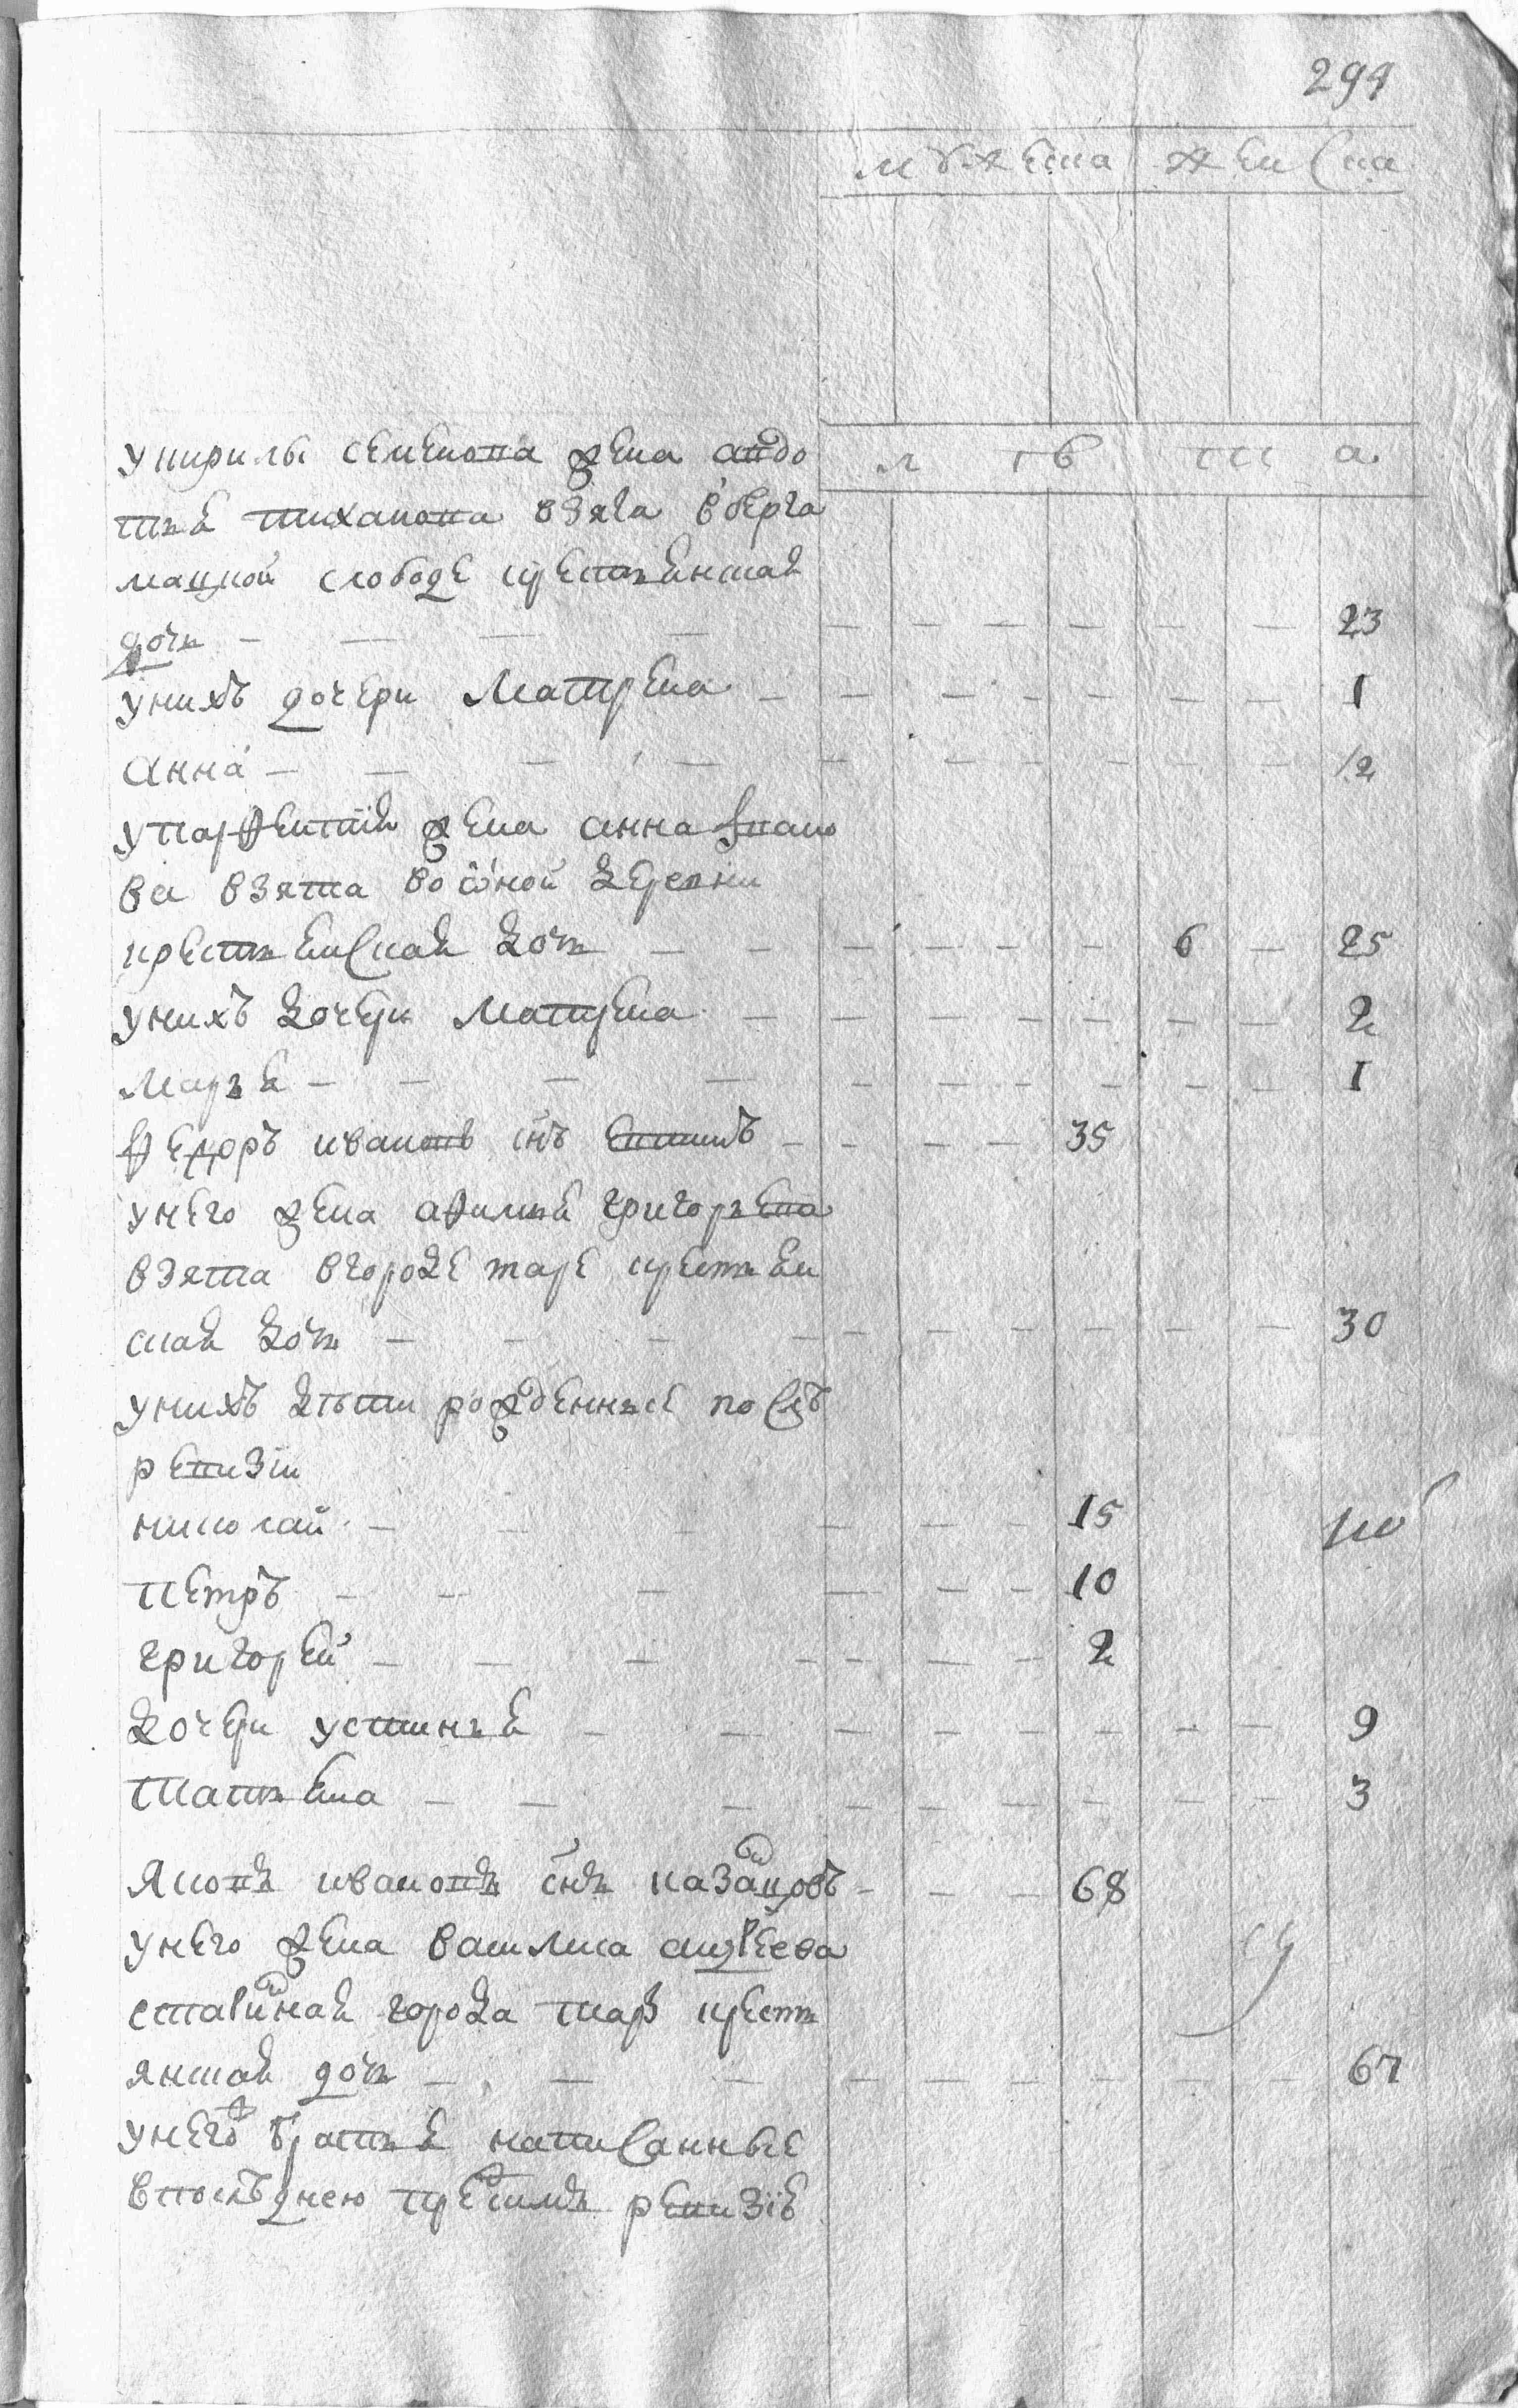 294
мужеска женска
у кирилы семенова жена авдо л тв ти а
тьѣ тиханова взята вберга
мацкой слободе крестьянская
дочь — — — — — — — — — — 23
у нихъ дочери Матрена — — — — — — — — 1
Анна — — — — — — — — — — — 1/2
у парфентия жена анна ивано
ва взята во оной деревни
крестьянская дочь — — — — — — — 6 — 25
у нихъ дочери матрена — — — — — — — — 2
Марья — — — — — — — — — — 1
Федоръ ивановъ снъ — — — — 35
у него жена афимья григорьева
взята вгороде таре крестьян
ская дочь — — — — — — — — — — 30
у нихъ дѣти рожденные послѣ
ревизіи
николай — — — — — — 15
Петръ — — — — — — 10
григорей — — — — — — — 2
дочери устинья — — — — — — — — — 9
Татьяна — — — — — — — — — — 3
Яковъ ивановъ снъ казанцовъ — — — 68
у него жена василиса андреева
стариная города тары кресть
янская дочь — — — — — — — — — — 67
у него братья написанные
впослѣднею пред симъ ревизіе